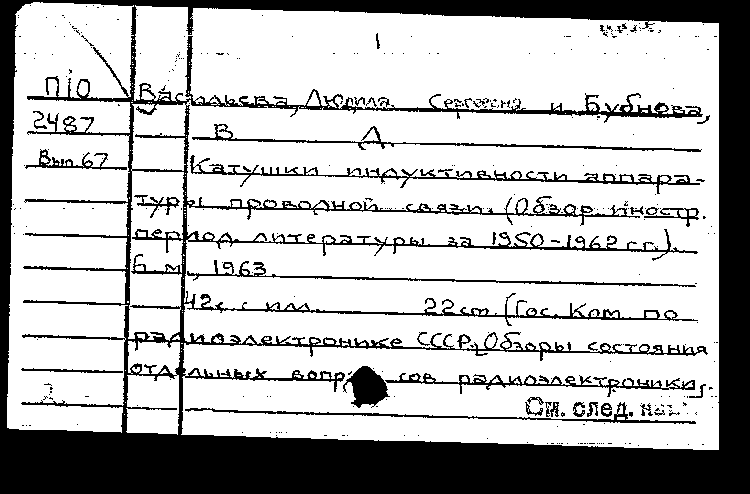 1
П10 Васильева, Людмила Сергеевна и Бубнова,
2487 В Д.
Вып. 67 Катушки индуктивности аппара-
туры проводной связи. (Обзор. иностр.
период. литературы за 1950-1962 гг.).
Б. м., 1963.
42с. с илл. 22см. (Гос. Ком. по
радиоэлектронике СССР. Обзоры состояния
отдельных вопросов радиоэлектроники,
2 См. след.